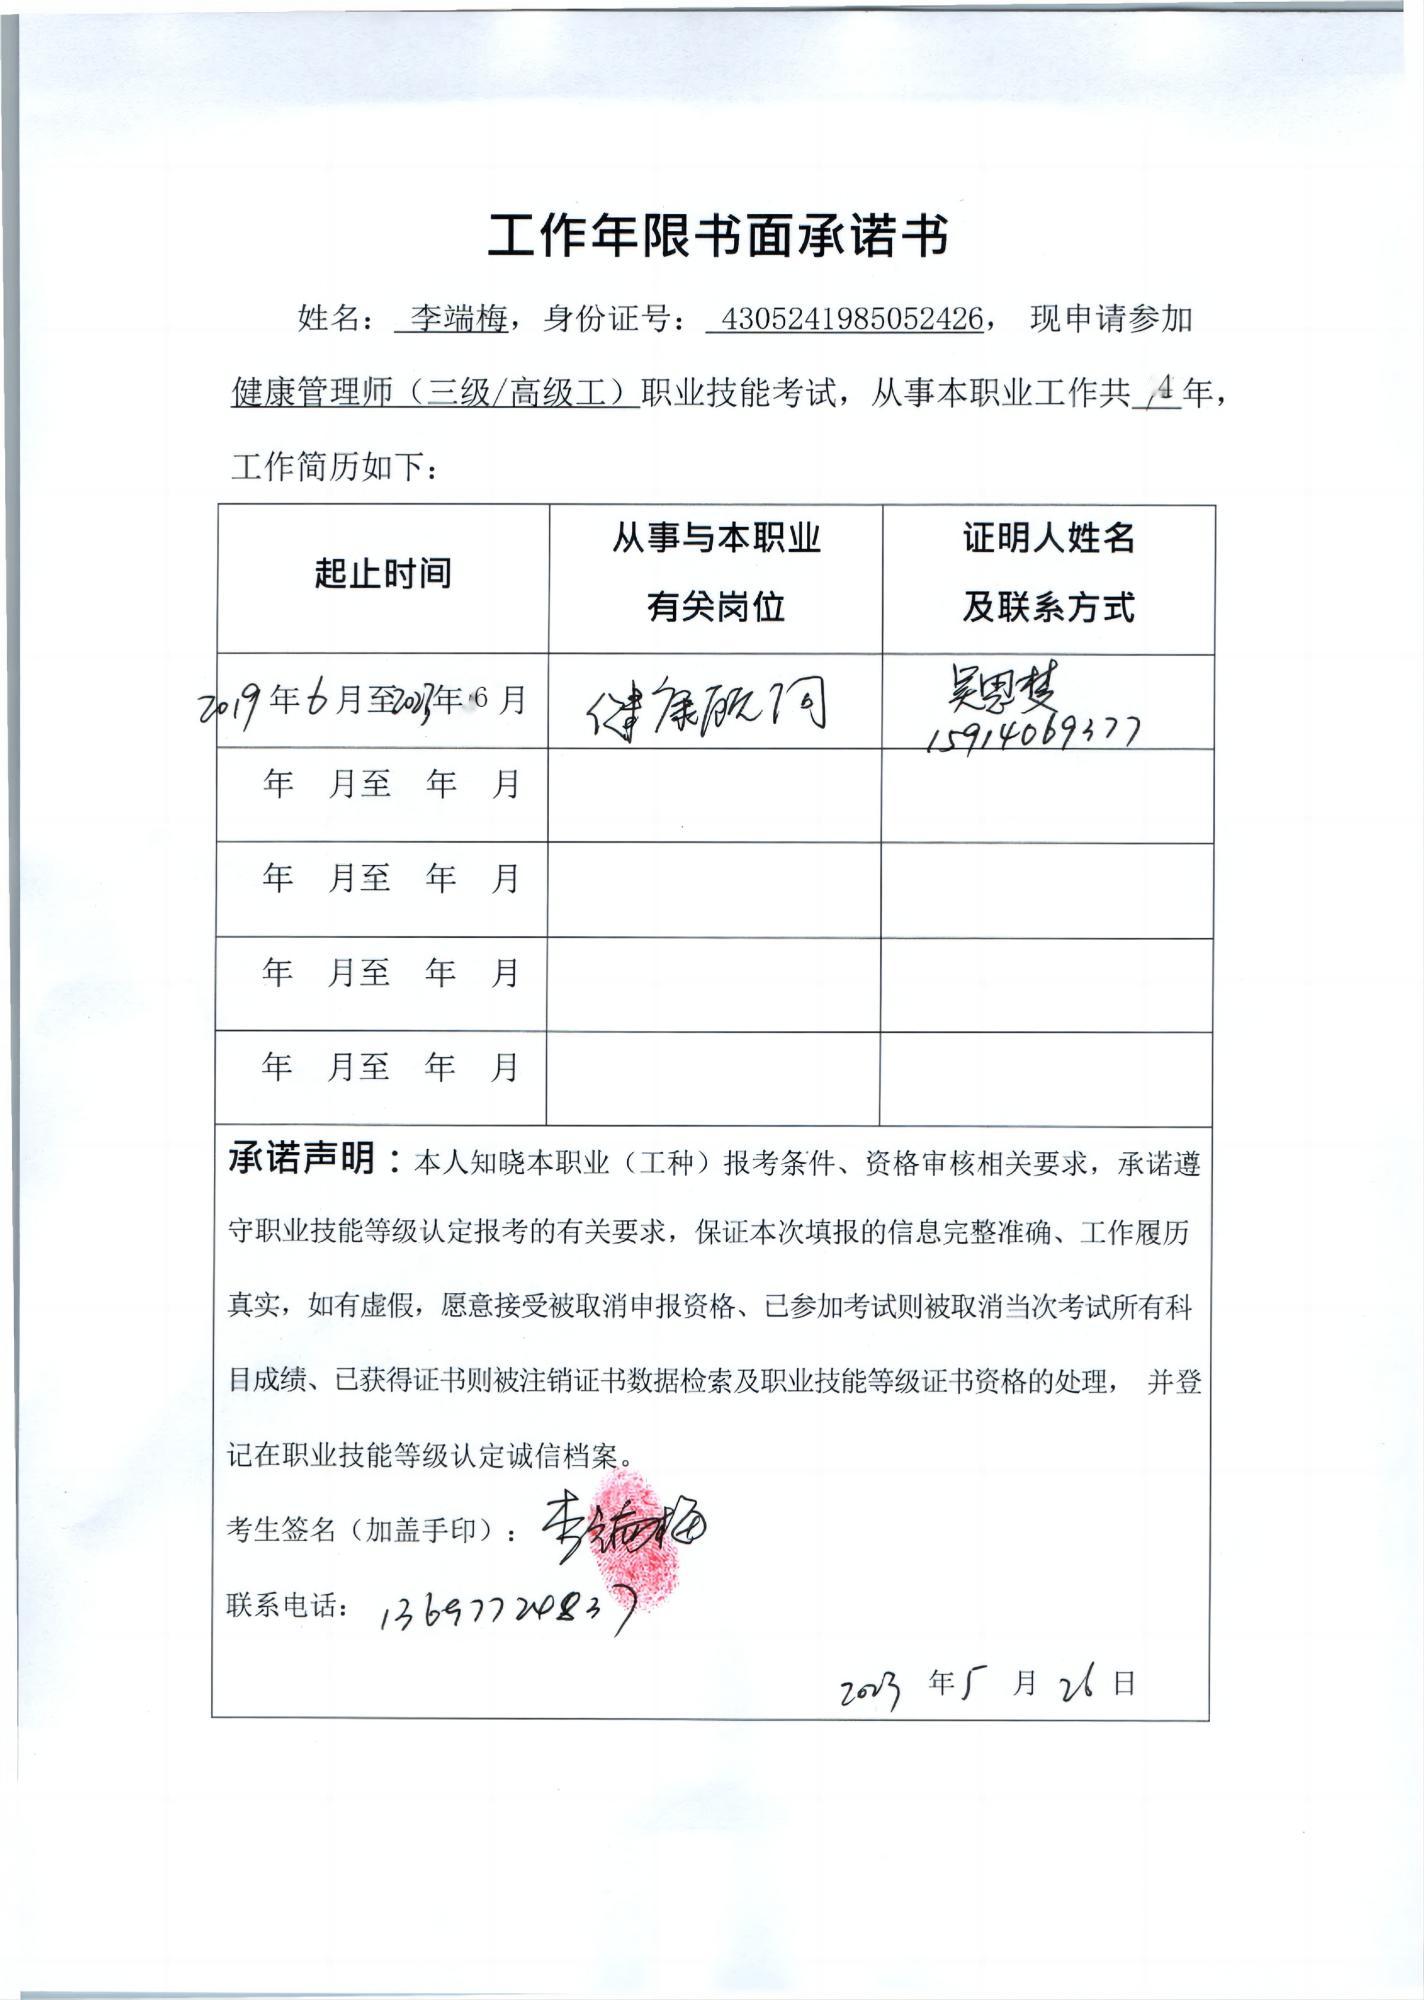 工作年限书面承诺书
姓名： 李端梅，身份证号： 4305241985052426， 现申请参加
健康管理师（三级/高级工）职业技能考试，从事本职业工作共 4 年，
工作简历如下：
起止时间
从事与本职业
有关岗位
证明人姓名
及联系方式
2019年6月至2023年6月
健康顾问
吴思梦
15914069377
年 月至 年 月
年 月至 年 月
年 月至 年 月
年 月至 年 月
承诺声明：本人知晓本职业（工种）报考条件、资格审核相关要求，承诺遵
守职业技能等级认定报考的有关要求，保证本次填报的信息完整准确、工作履历
真实，如有虚假，愿意接受被取消申报资格、已参加考试则被取消当次考试所有科
目成绩、已获得证书则被注销证书数据检索及职业技能等级证书资格的处理， 并登
记在职业技能等级认定诚信档案。
考生签名（加盖手印）：李端梅
联系电话：13697724837
2023 年 5 月 26 日